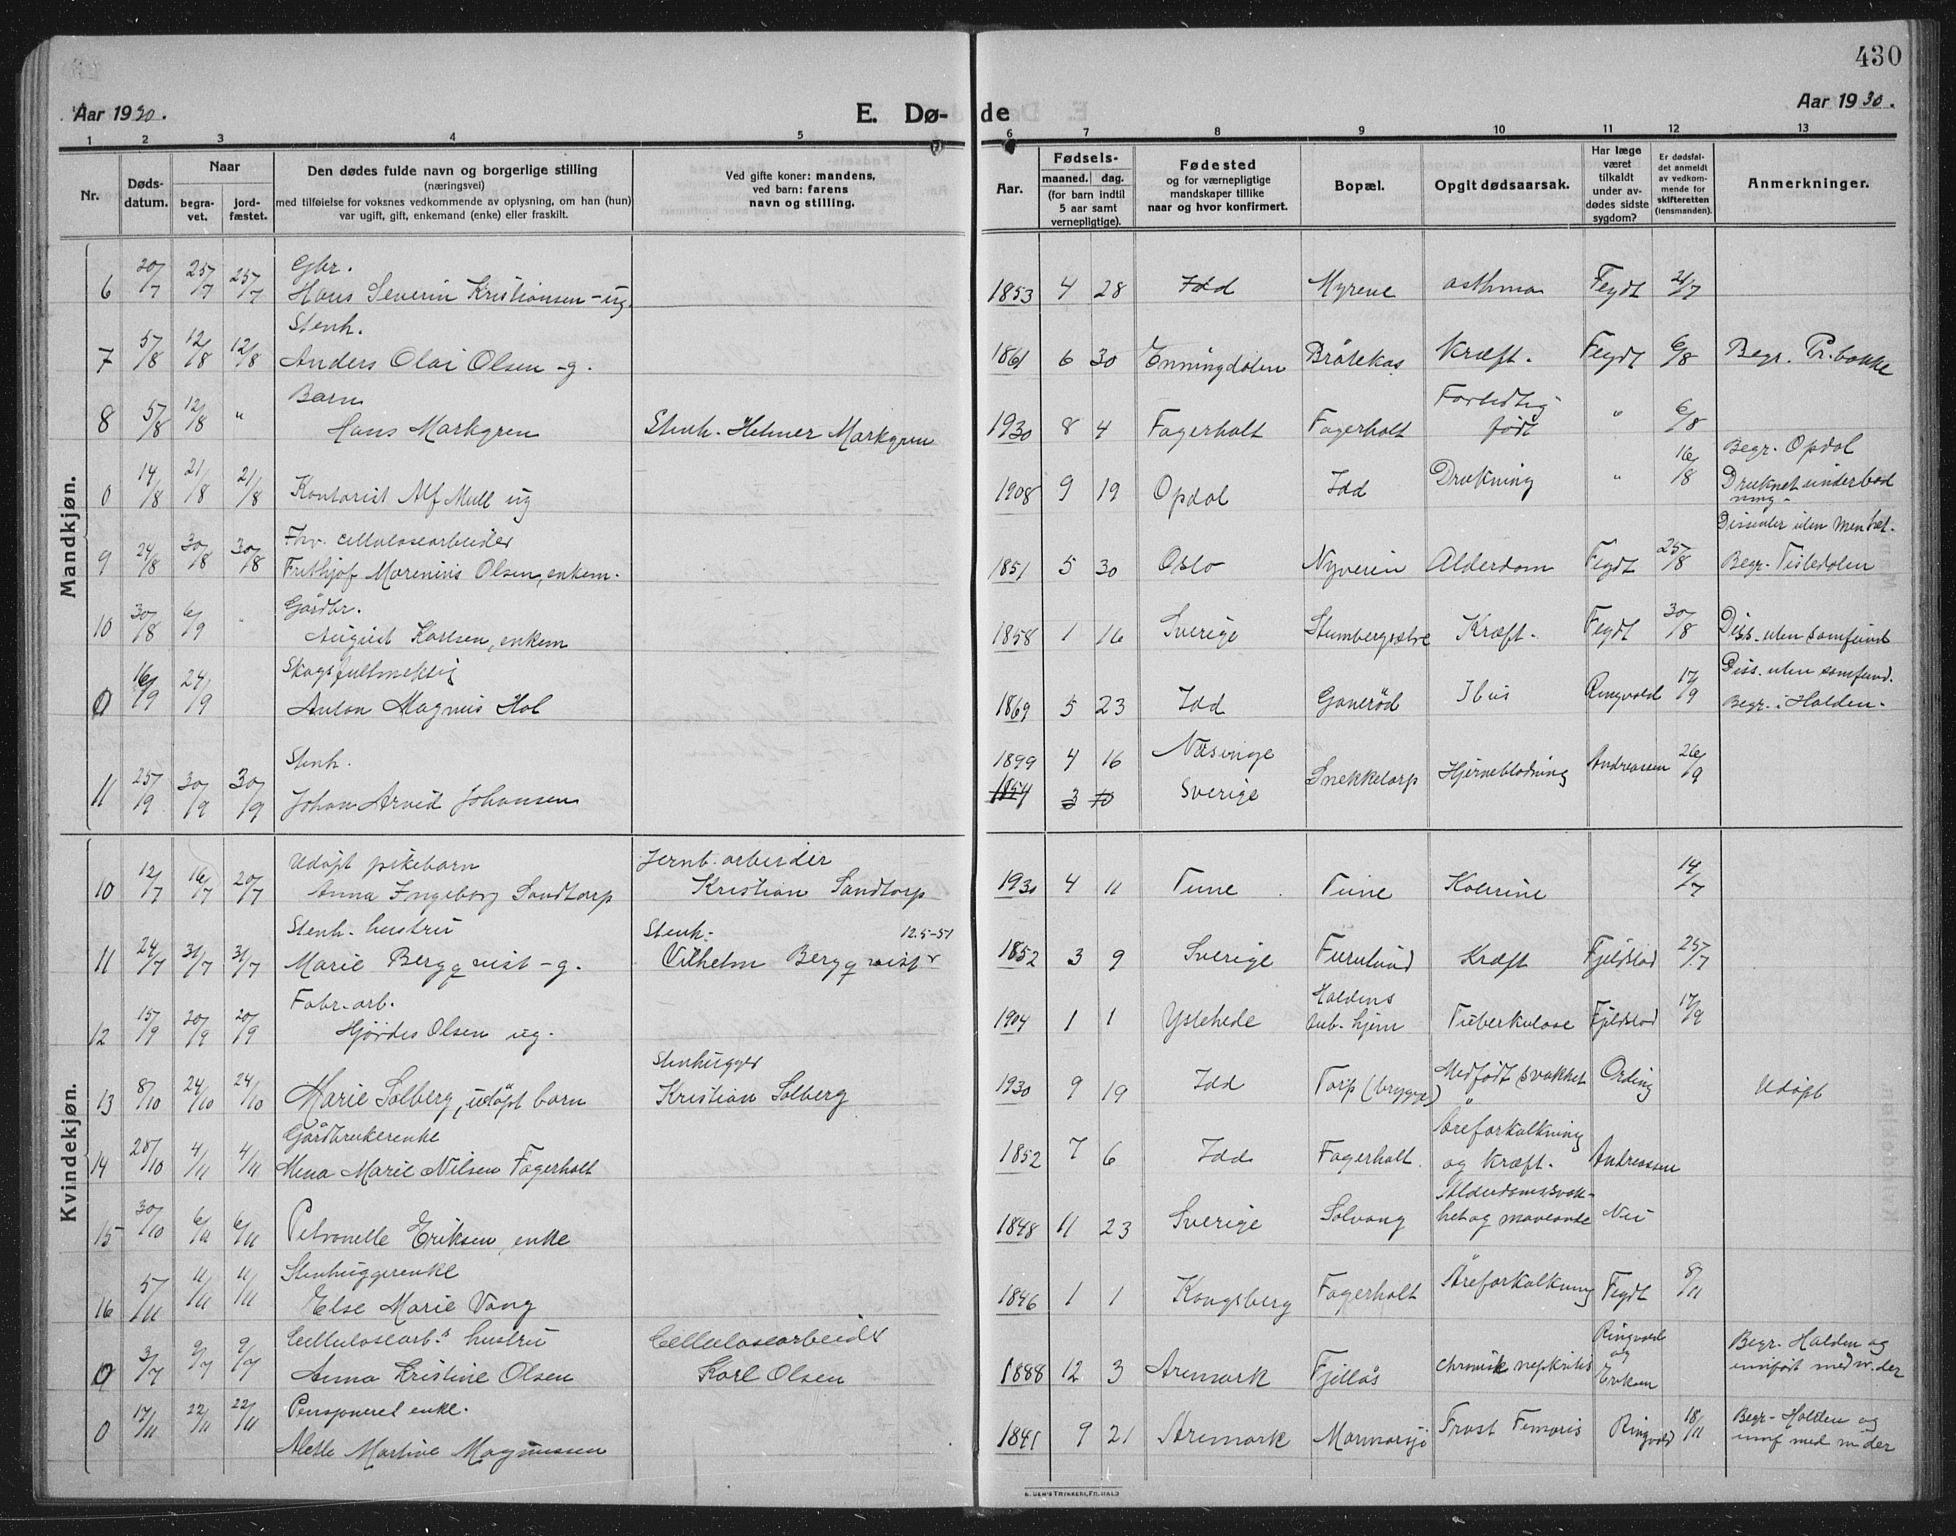 430
Aar 1930.
E. Døde
Aar 1930.
1 2 3 4 5 6 7 8 9 10 11 12 13
Nr.
Dødsdatum.
Naar
begravet.
jordfæstet.
Den dødes fulde navn og borgerlige stilling
(næringsvei)
med tilføielse for voksnes vedkommende av oplysning, om han (hun)
var ugift, gift, enkemand (enke) eller fraskilt.
Ved gifte koner: mandens,
ved barn: farens
navn og stilling.
Aar.
Fødsels-
maaned. dag.
(for barn indtil
5 aar samt
vernepligtige).
Fødested
og for værnepligtige
mandskaper tillike
naar og hvor konfirmert.
Bopæl.
Opgit dødsaarsak.
Har læge
været
tilkaldt
under av-
dødes sidste
sygdom?
Er dødsfal-
det anmeldt
av vedkom-
mende for
skifteretten
(lensmanden).
Anmerkninger.
Mandkjøn.
6 20/7 25/7 25/7 Gbr. Hans Severin Kristiansen - ug. 1853 4 28 Idd Myrene asthma Feydt 21/7
7 5/8 12/8 12/8 Stenh. Anders Olai Olsen - g. 1861 6 30 Enningdalen Bråtekas Kræft. Feydt 6/8 Begr. Pr.bakke
8 5/8 12/8 " Barn Hans Markgren Stenh. Helmer Markgren 1930 8 4 Fagerholt Fagerholt født " 6/8
0 14/8 21/8 21/8 Kontorist Alf Mull ug 1908 9 19 Opdal Idd Drukning " 16/8 Begr. Opdal Druknet under badning.
9 24/8 30/8 30/8 Fhv. cellulosearbeider Frithjof Mareninis Olsen, enkem. 1851 5 30 Oslo Nyveien Alderdom Feydt 25/8 Dissenter uten menhet. Begr. Tistedalen
10 30/8 6/9 " Gårdbr. August Karlsen, enkem 1858 1 16 Sverige Kræft. Feydt 30/8 Diss. uten samfund
0 16/9 24/9 Skogsfuldmektig Anton Magnus Hol 1869 5 23 Idd Ganerød Ringvold 17/9 Diss. uten samfund. Begr. i Halden.
11 25/9 30/9 30/9 Stenh. Johan Arvid Johansen 1899 4 16 Næsinge Sverige Snekketorp Hjerneblødning Andreassen 26/9
1854 3 10
Kvindekjøn.
10 12/7 16/7 20/7 Udøpt pikebarn Anna Ingeborg Sandtorp Jernb.arbeider Kristian Sandtorp 1930 4 11 Tune Tune Kolerine 14/7
11 24/7 31/7 31/7 Stenh. hustru Marie Bergqvist - g. Stenh. Vilhelm Bergqvist 12.5-51 1852 3 9 Sverige Furulund Kræft Fjeldstad 25/7
12 15/9 20/9 20/9 Fabr.arb. Hjørdis Olsen ug. 1904 1 1 Ystehede Haldens tub.hjem Tuberkulose Fjeldstad 17/9
13 8/10 24/10 24/10 Marie Solberg, udøpt barn Stenhugger Kristian Solberg 1930 9 19 Idd Torp (brygge) Medfødt svakhet Ording Udøpt
14 28/10 4/11 4/11 Gårdbrukerenke Mena Marie Nilsen Fagerholt 1852 7 6 Idd Fagerholt. Åreforkalkning og Kræft. Andreassen
15 30/10 6/11 6/11 Petronelle Eriksen, enke 1848 11 23 Sverige Solvang Alderdomssvakhet og maveonde Nei
16 5/11 11/11 11/11 Stenhuggerenke Else Marie Vang 1846 1 1 Kongsberg Fagerholt Åreforkalkning Feydt 8/11
0 3/7 9/7 9/7 Cellulosearb.s hustru Anna Kristine Olsen Cellulosearbeider Karl Olsen 1888 12 3 Aremark Fjellås chronisk nefritis Ringvold og Eriksen Begr. Halden og innført med nr. der
0 17/11 22/11 22/11 Pensjoneret enke. Alette Martine Magnussen 1841 9 21 Aremark Marmorsjø Fract Femoris Ringvold 18/11 Begr. Halden og innf med nr der